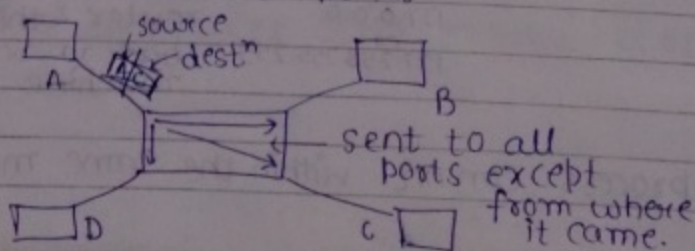 source
destⁿ
A C
A
B
sent to all
ports except
from where
it came.
D
C